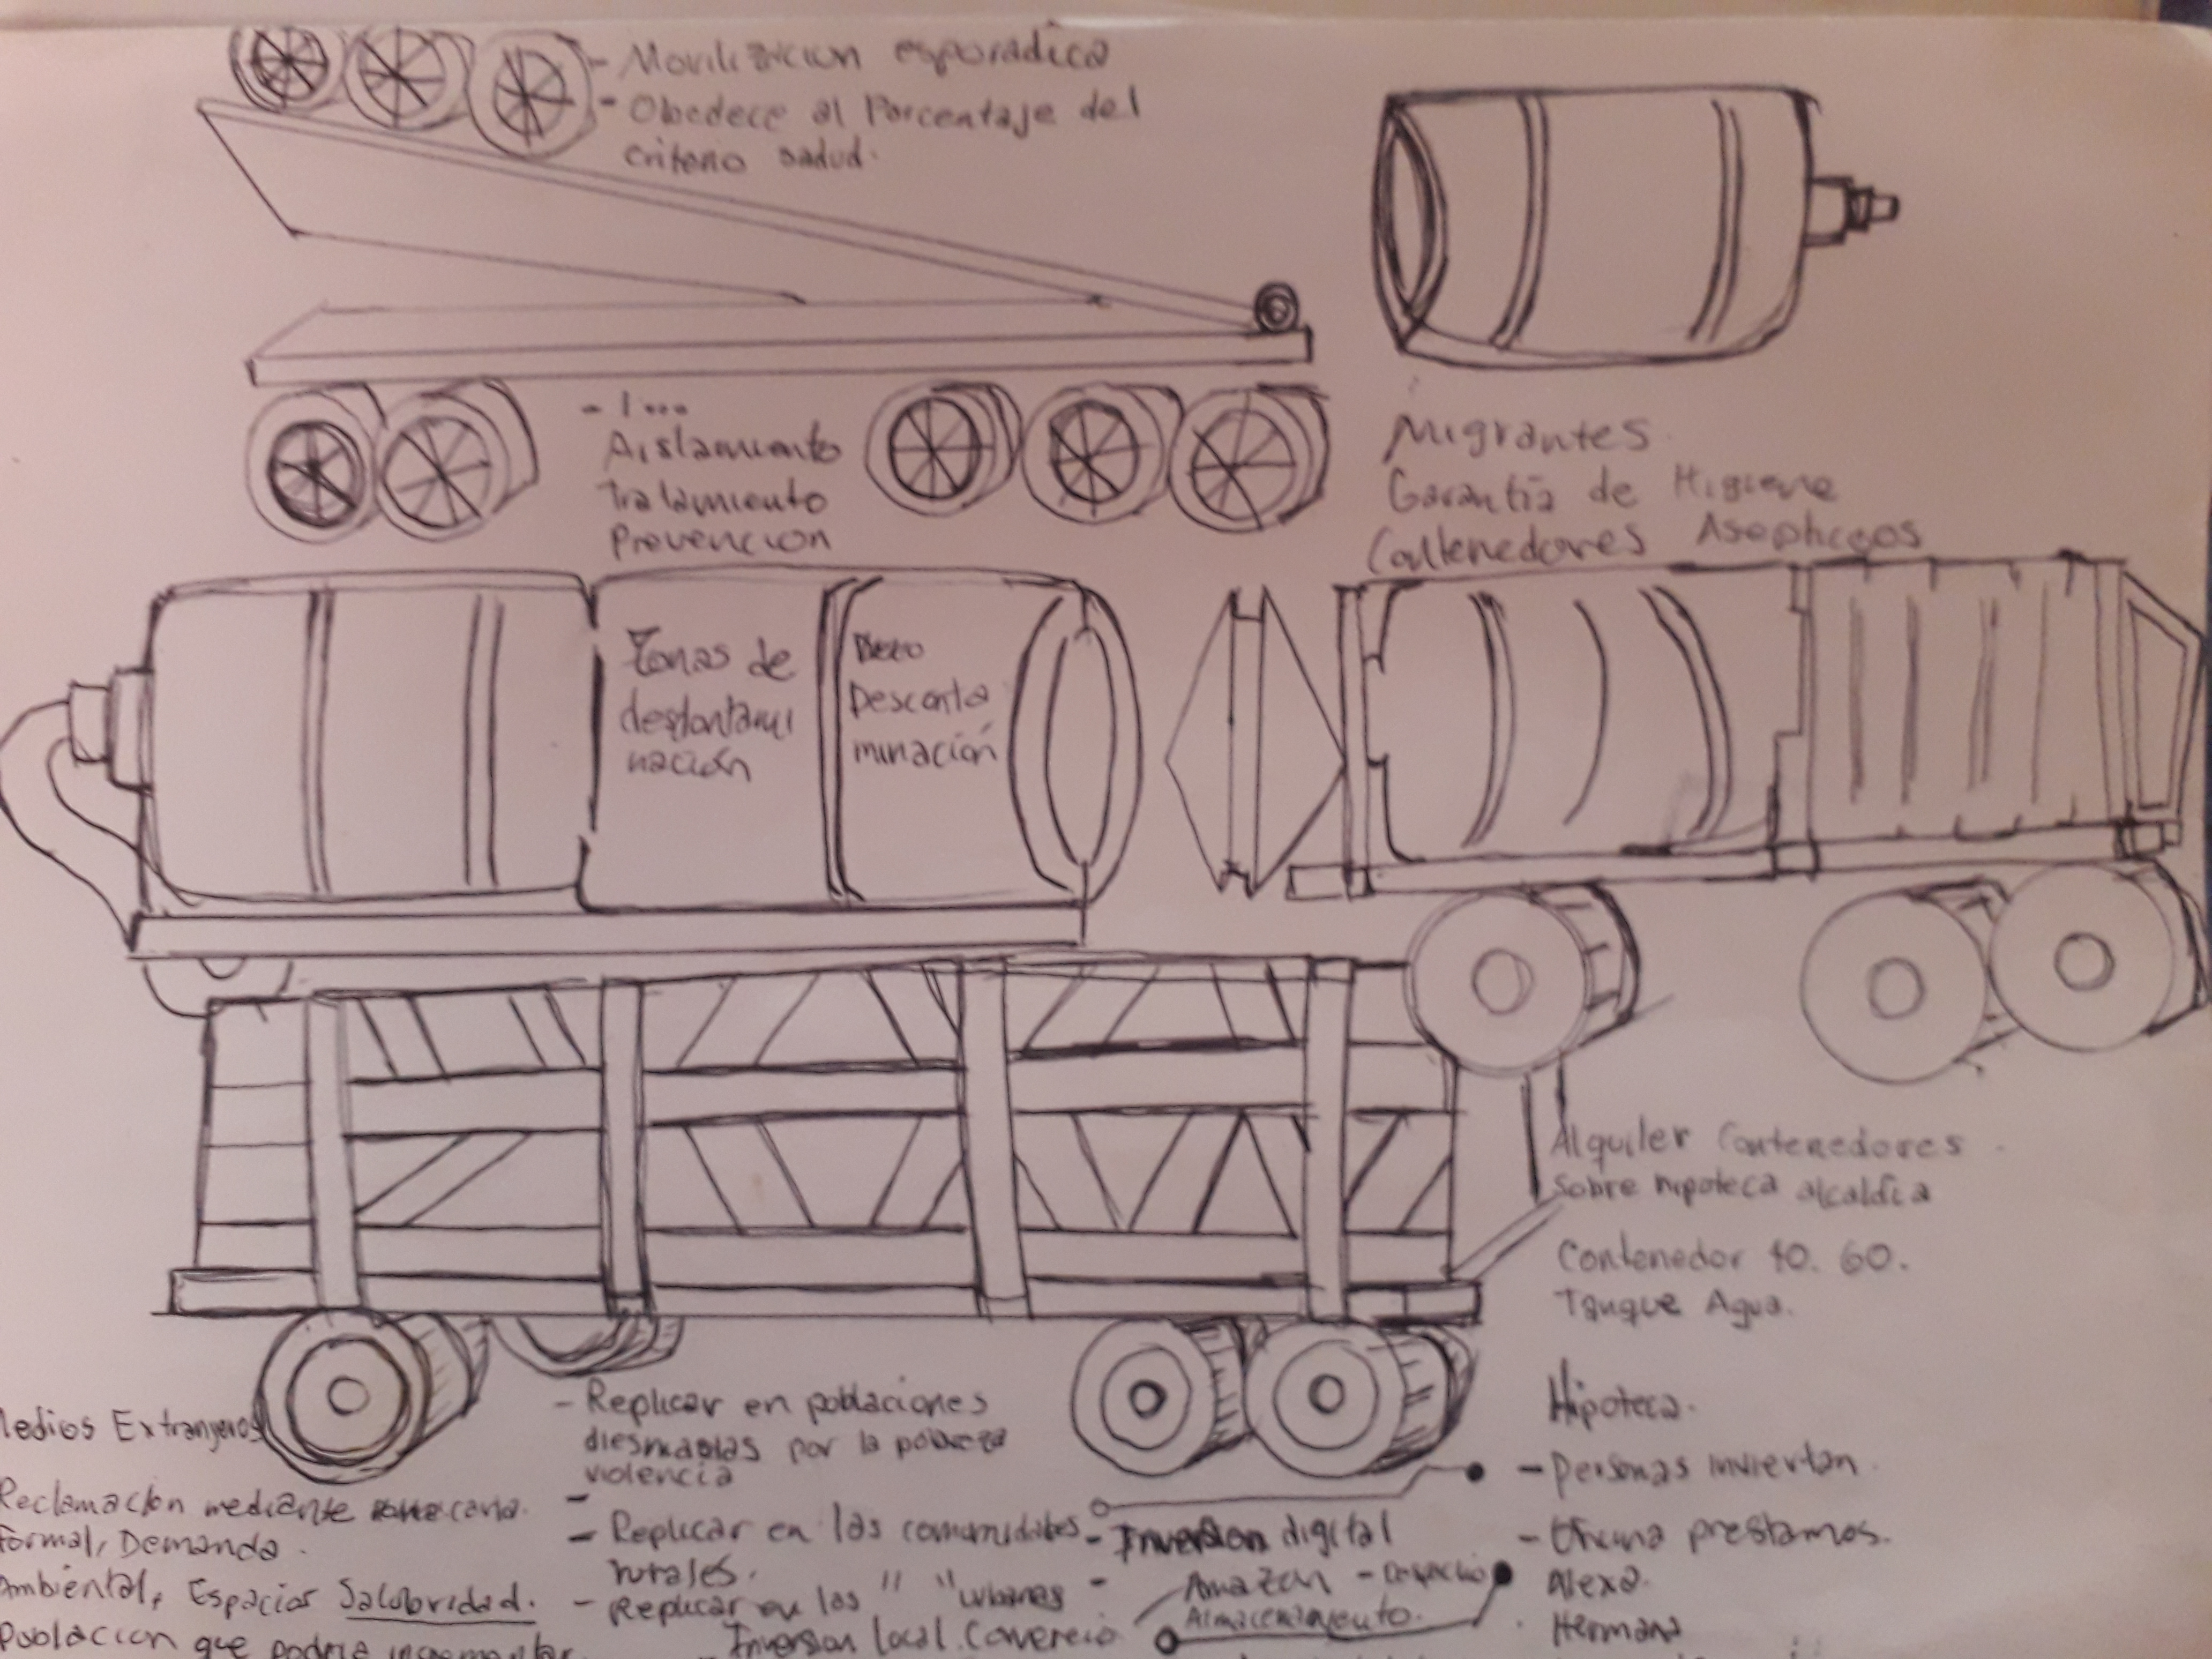 - Movilización esporádica
- Obedece al Porcentaje del
criterio salud.
- 1....
Aislamiento
Tratamiento
Prevencion
Migrantes
Garantía de Higiene
Contenedores Asepticos
Zonas de
descontami
nación
Descota
minación
Alquiler Contenedores
sobre hipoteca alcaldía
Contenedor 40. 60.
Tanque Agua.
Medios Extranjeros
Reclamación mediante
formal, Demanda.
Ambiental, Espacios Salubridad.
Población que podria
- Replicar en poblaciones
diesmadas por la pobreza
violencia
- Replicar en las comunidades
rurales.
- Replicar en las " urbanas
Inversion local. Comercio
- Inversion digital
Amazon -
Almacenamiento.
Hipoteca.
- personas inviertan.
- prestamos.
Alexa
Hermana